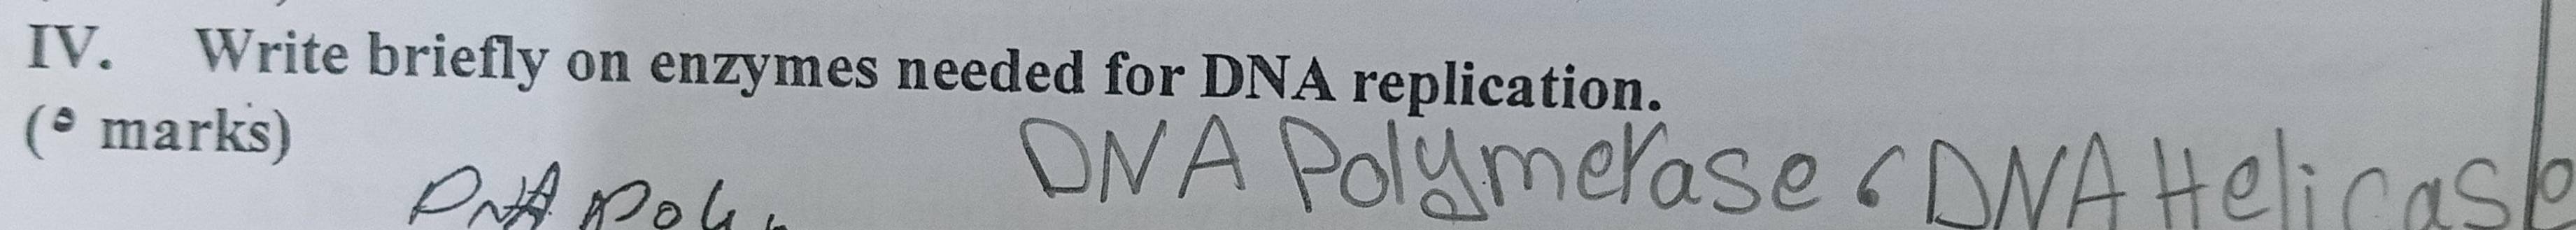 IV. Write briefly on enzymes needed for DNA replication.
( marks)
DNA Polymerase، DNA Helicase
DNA